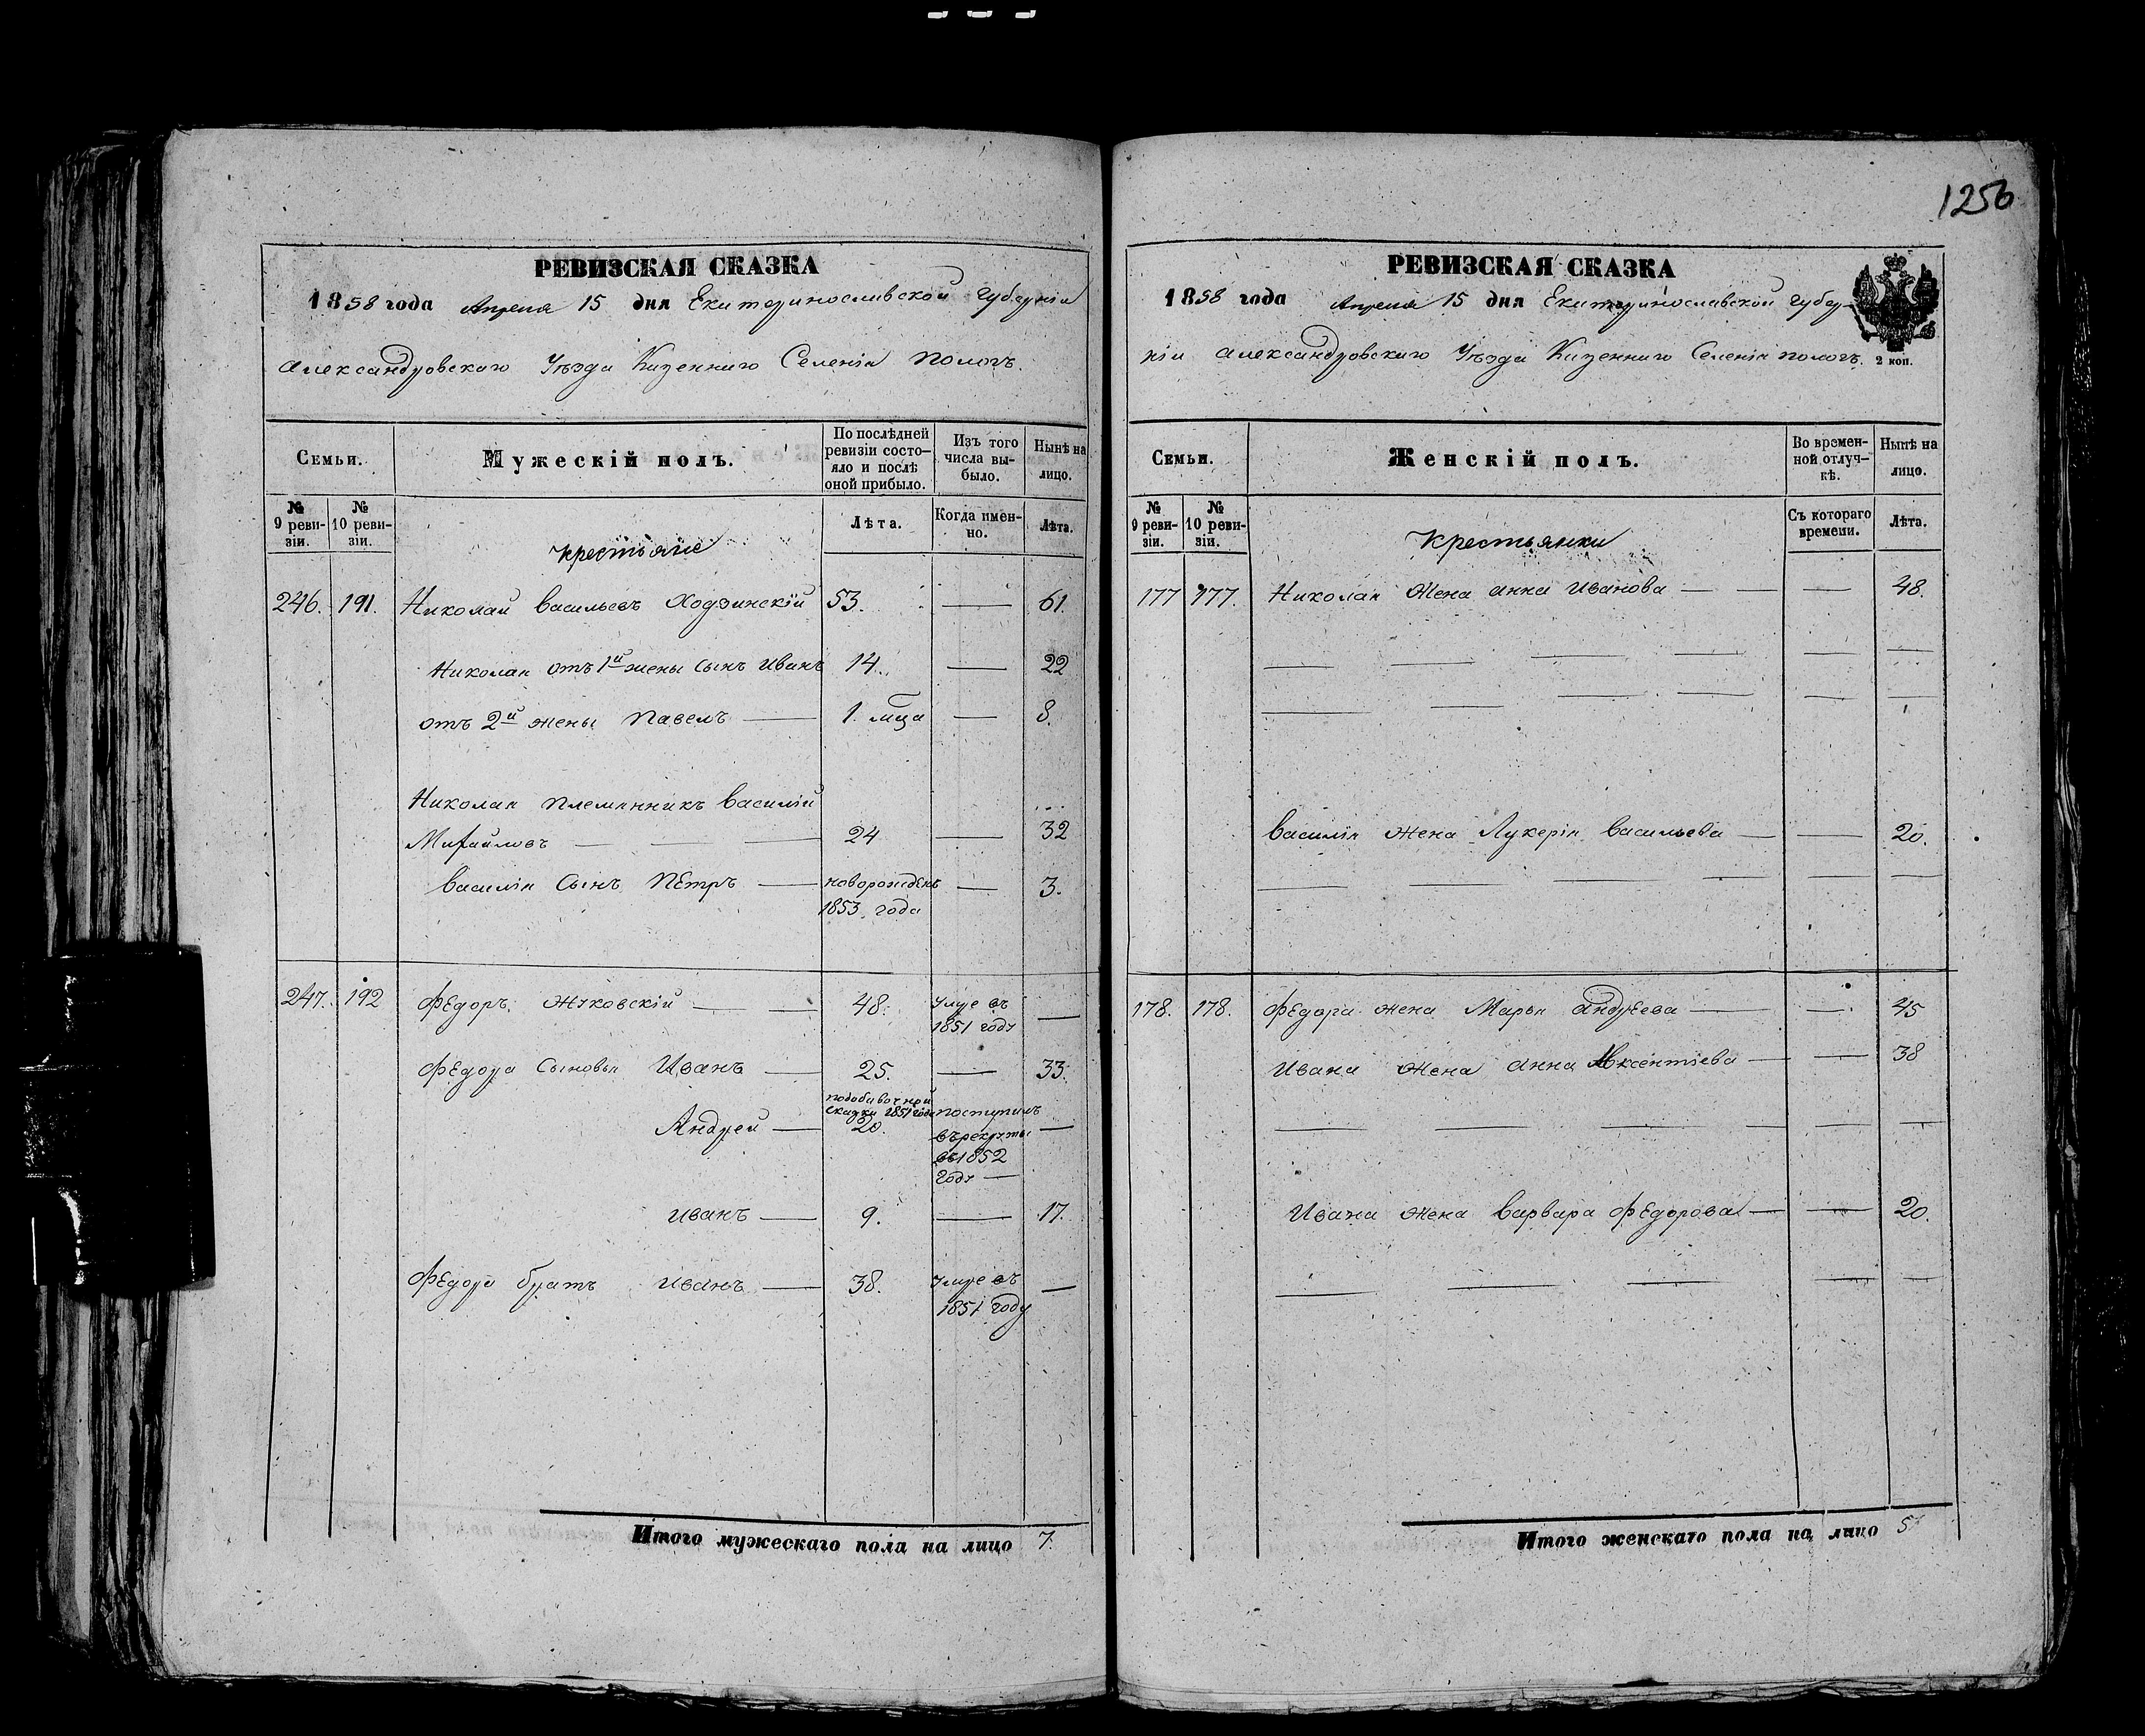 1256
РЕВИЗСКАЯ СКАЗКА
1858 года Апреля 15 дня Екатеринославской губернiи
Александровскаго Уѣзда Казеннаго Селенiя Пологъ.
Семьи. Мужескій полъ. По послѣдней ревизіи состо-яло и послѣ оной прибыло. Изъ того числа вы-было. Нынѣ на лицо.
№ 9 реви-зіи. № 10 реви-зіи. Лѣта. Когда имен-но. Лѣта.
Крестьяне
246. 191. Николай Васильевъ Ходзинскій 53. — 61.
Николая отъ 1й жены сынъ Иванъ 14. — 22
отъ 2й жены Павелъ — 1. мца — 8.
Николая племянникъ Василій
Михайловъ — — — 24 — 32
Василія Сынъ Пётръ — новорожденъ — 3.
1853 года
247. 192 Фёдоръ Жуковскій — — 48. Умре въ —
1851 году
Фёдора Сыновья Иванъ — 25. — 33.
подобавочной
сказки 1851 года поступилъ
Андрей — 20. въ рекруты —
въ 1852
году —
Иванъ — 9. — 17.
Фёдора братъ Иванъ — 38. Умре въ —
1851 году
Итого мужескаго пола на лицо 7.
РЕВИЗСКАЯ СКАЗКА
1858 года Апреля 15 дня Екатеринославской губер-
нiи Александровскаго Уѣзда Казеннаго Селенiя Пологъ. 2 коп.
Семьи. Женскій полъ. Во времен-ной отлуч-кѣ. Нынѣ на лицо.
№ 9 реви-зіи. № 10 реви-зіи. Съ котораго времени. Лѣта.
Крестьянки
177 177. Николая Жена Анна Иванова — — — 48.
Василія жена Лукерія Васильева — — 20.
178. 178. Фёдора жена Марья Андрѣева — — 45
Ивана жена Анна Авксентіева — — 38
Ивана жена Варвара Фёдорова — — 20.
Итого женскаго пола на лицо 5